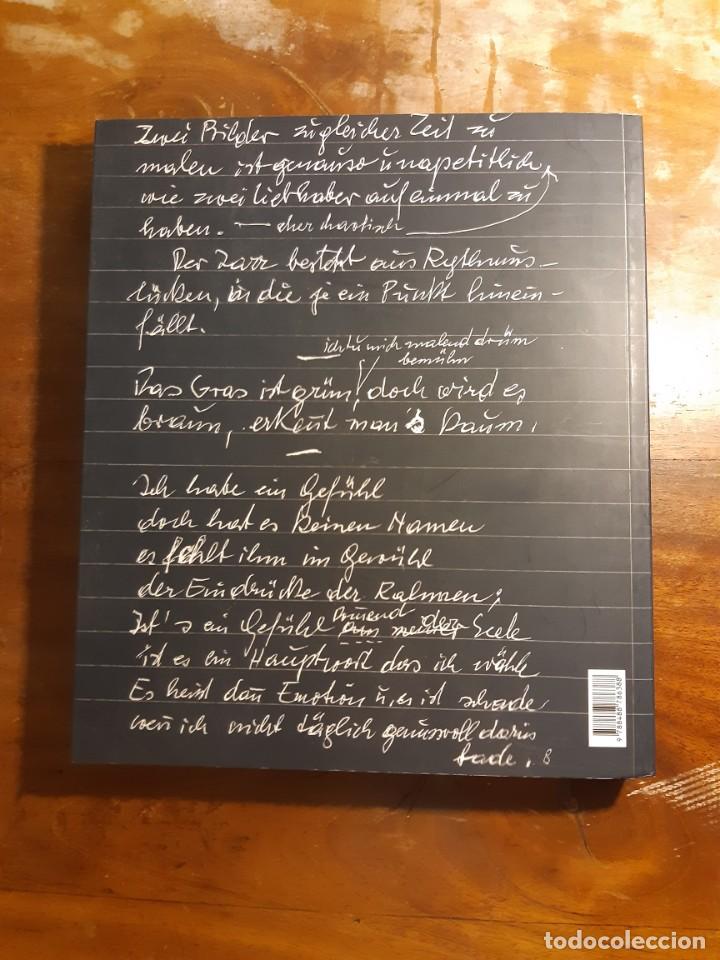 Zwei Bilder zugleicher Zeit zu
malen ist genauso unapetitlich,
wie zwei liebhaber auf einmal zu
haben. — eher chaotisch
Der Jazz besteht aus Rythmus-
lücken, in die je ein Punkt hinein-
fällt.
ich tu mich malend drüm
bemühn
Das Gras ist grün, doch wird es
braun, erkennt man's kaum.
Ich habe ein Gefühl
doch hat es keinen Namen
es fehlt ihm im Gewühl
der Eindrücke der Rahmen;
Ist's ein Gefühl der Seele
ist es ein Hauptwort das ich wähle
Es heist dan̄ Emotion u. es ist schade
wen̄ ich nicht täglich genussvoll darin
bade. 8
9 788488 786388
todocoleccion